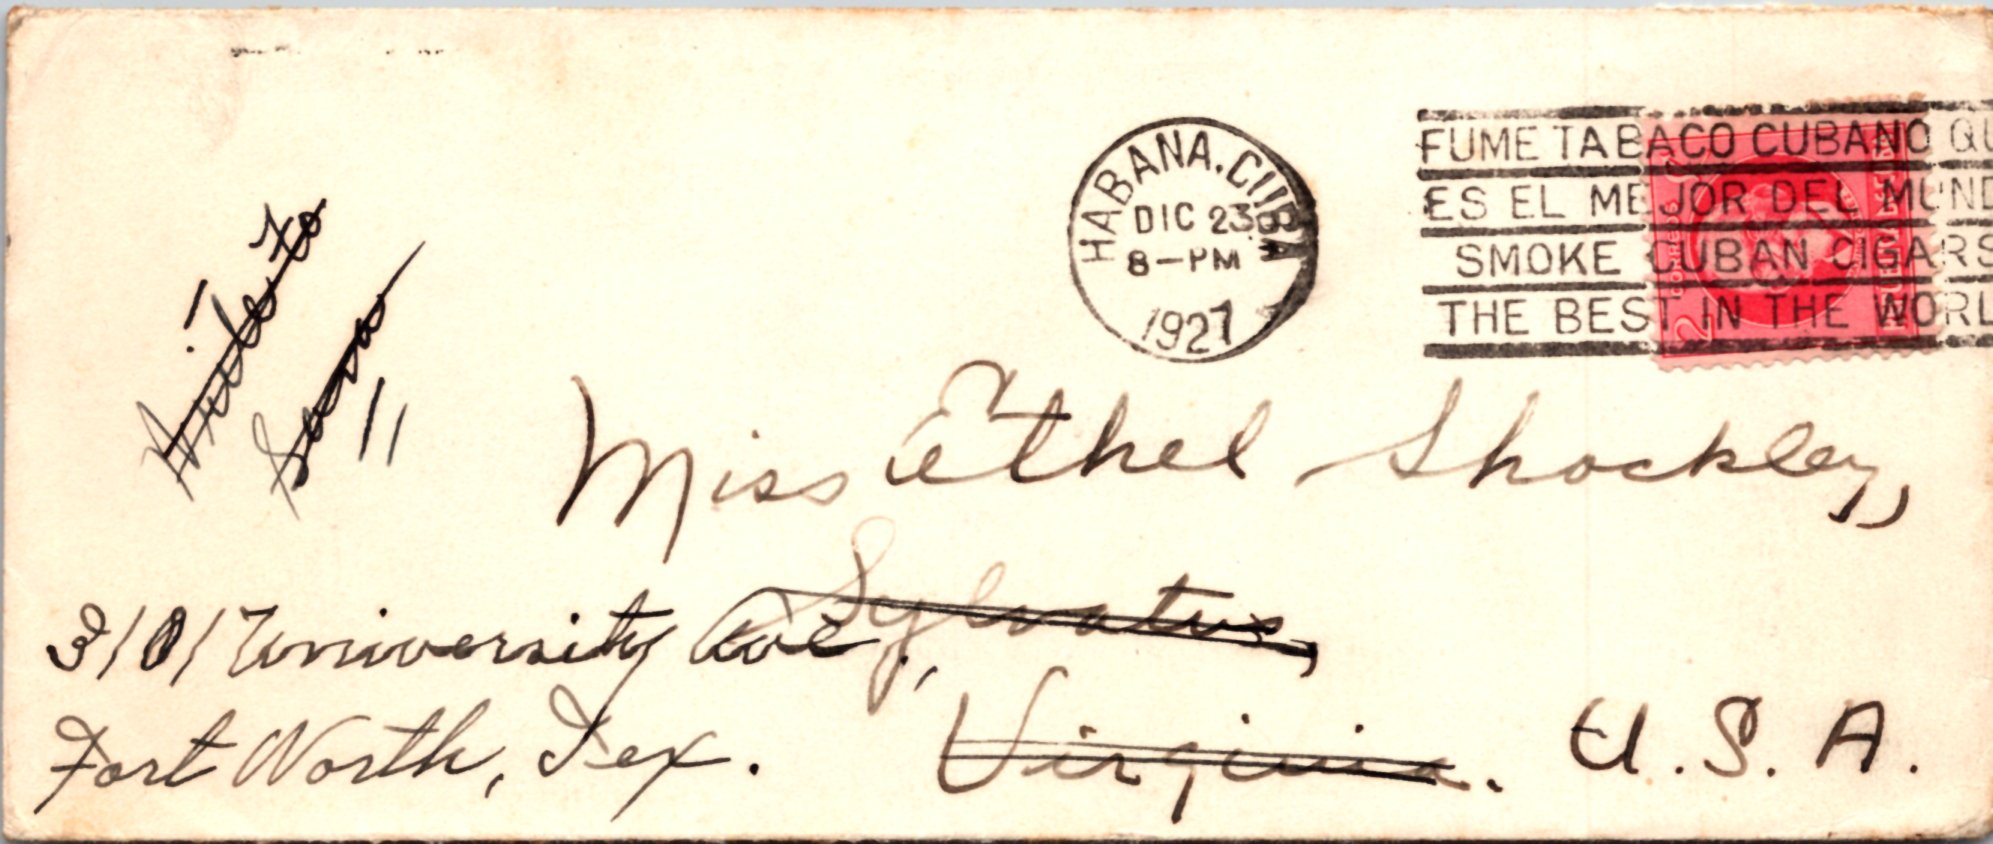 HABANA, CUBA
DIC 23
8-PM
1927
FUME TABACO CUBANO QU
ES EL MEJOR DEL MUND
SMOKE CUBAN CIGARS
THE BEST IN THE WORL
Write to
soon
Miss Ethel Shockley,
Sylvatus,
3101 University Ave.,
Virginia. U.S.A.
Fort Worth, Tex.